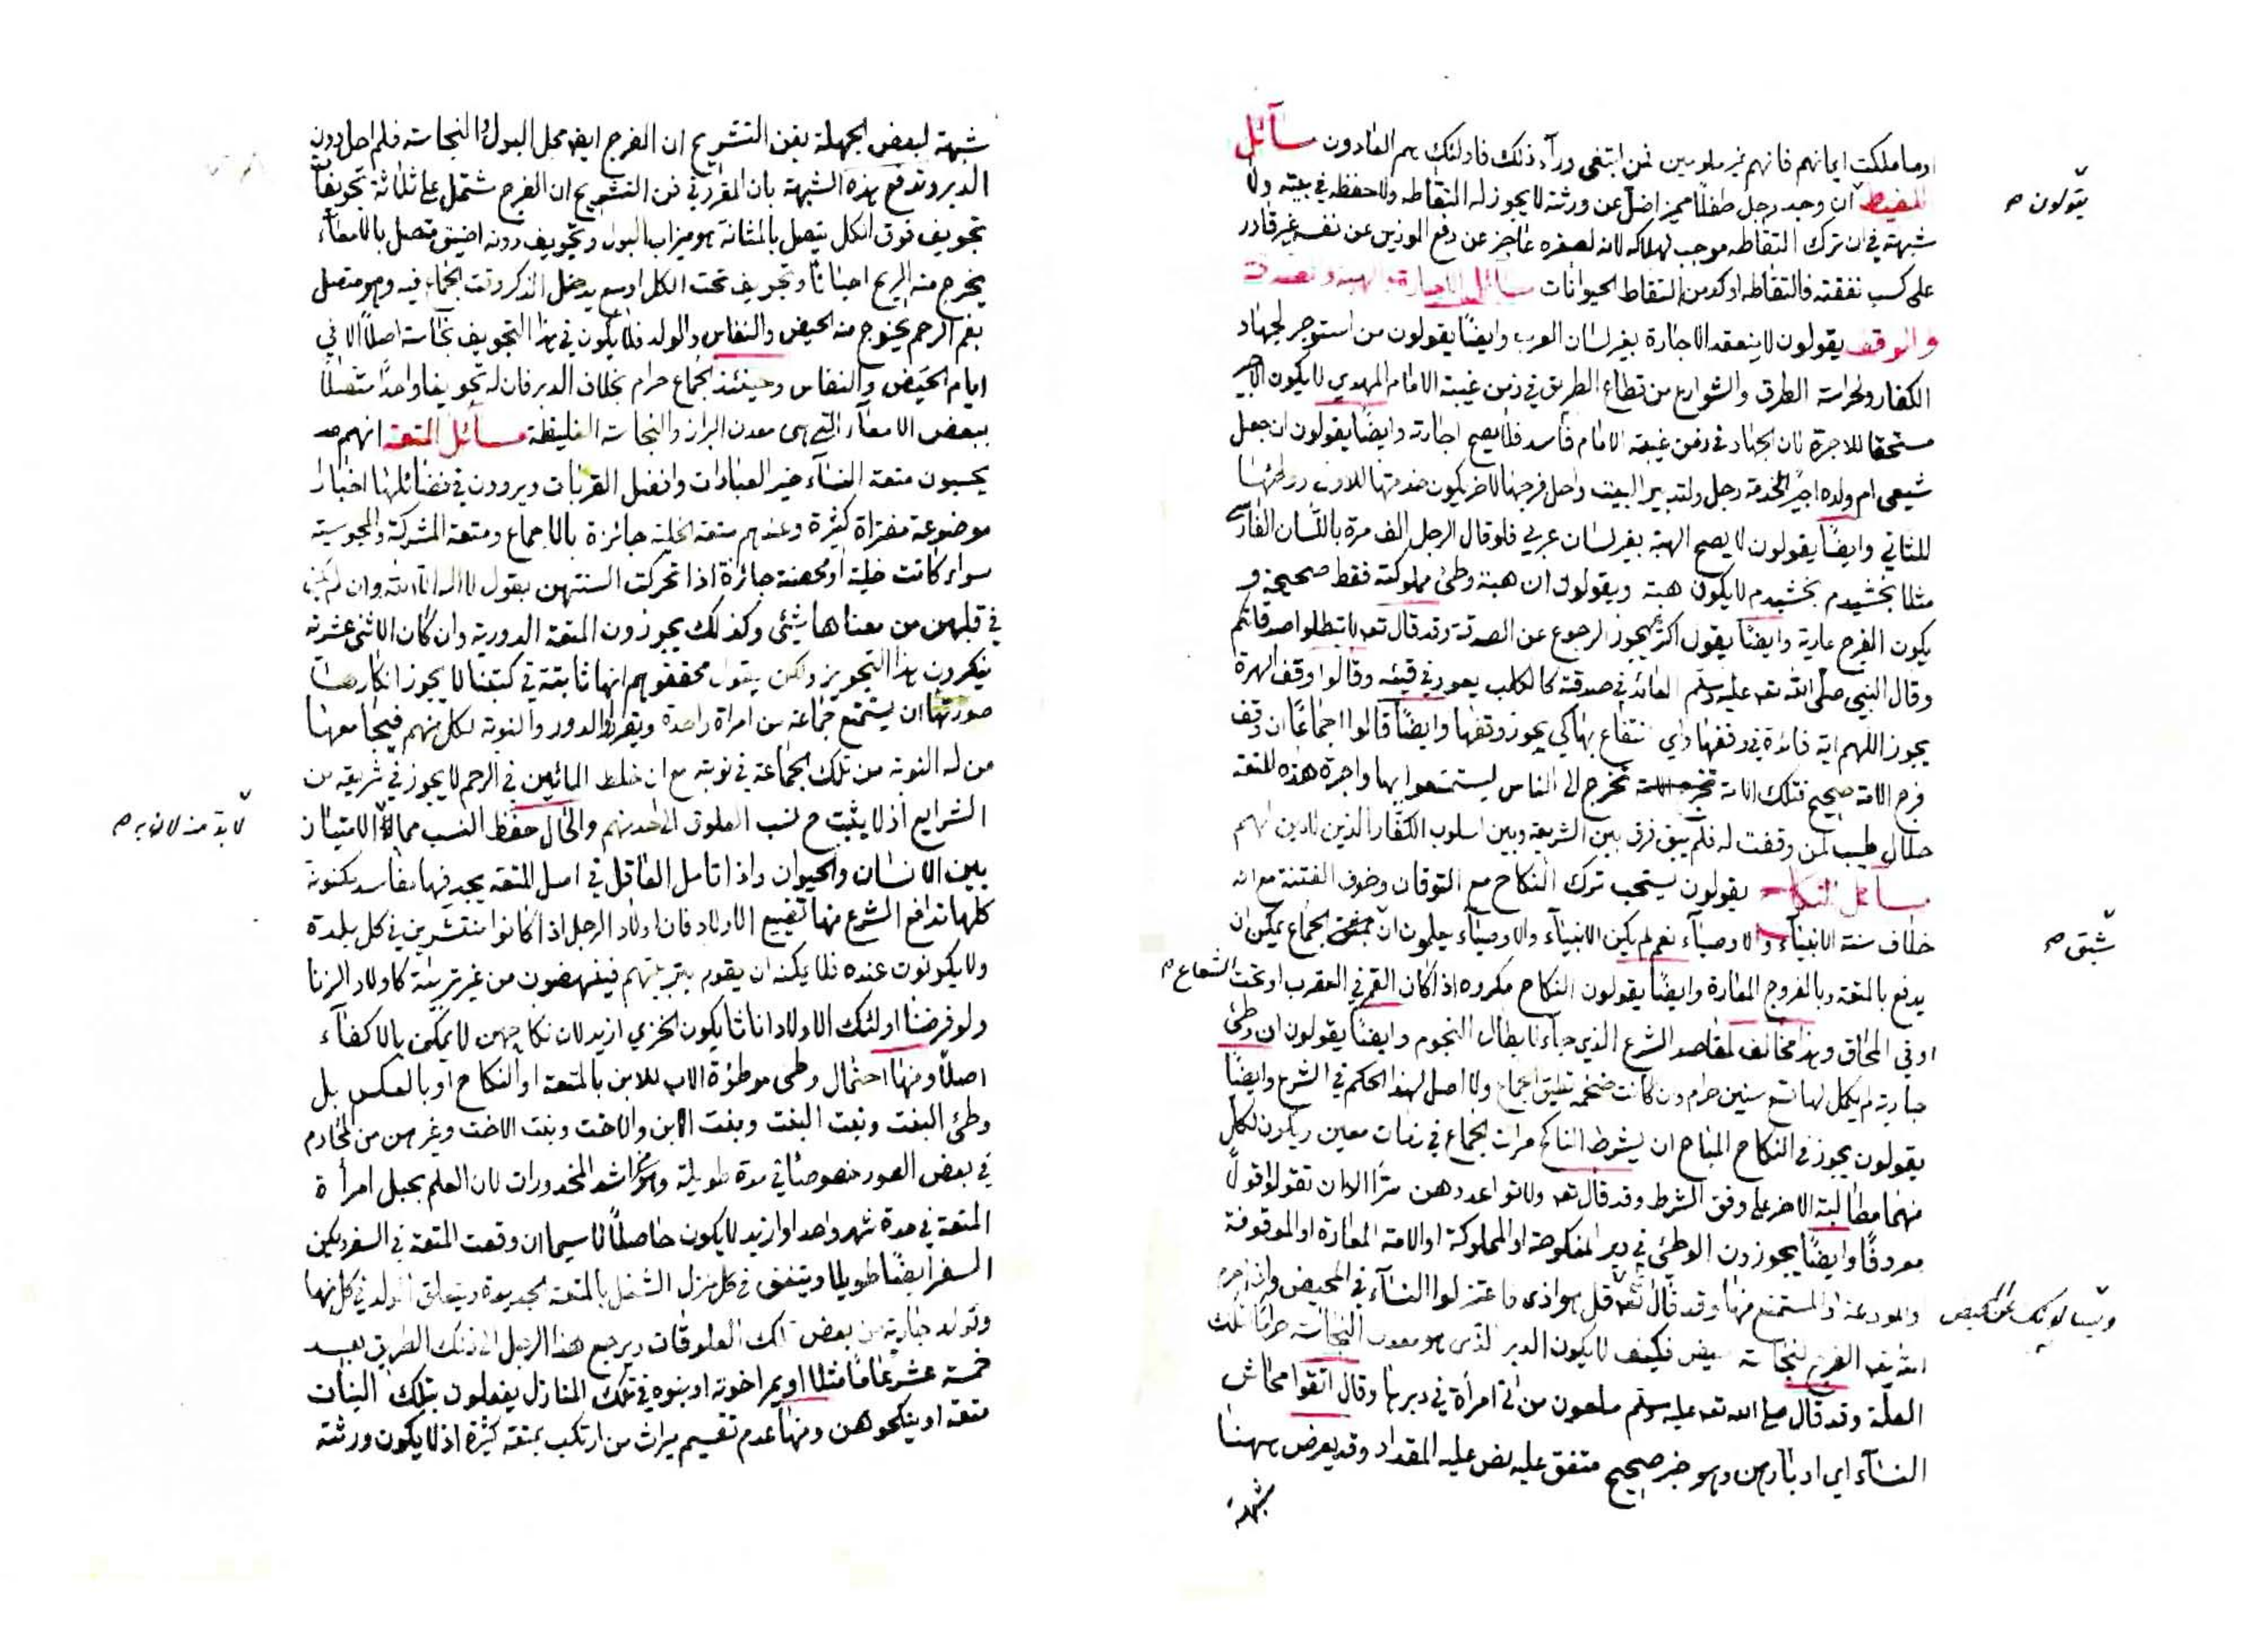 او ما ملكت ايمانهم فانهم غير ملومين فمن ابتغى ورآء ذلك فاولئك هم العادون مسآئل
اللقيط ان وجد رجل طفلًا مميزا ضلّ عن ورثته لا يجوز له التقاطه ولا حفظه في بيته ولا
يقولون صح
شبهة في ان ترك التقاطه موجب لهلاكه لانه لصغره عاجز عن دفع الموذين عن نفسه غير قادر
على كسب نفقته فالتقاطه اوكد من التقاط الحيوانات مسائل الاجارة والهبة والصدقة
والوقف يقولون لا ينعقد الاجارة بغير لسان العرب وايضًا يقولون من استوجر لجهاد
الكفار ولحراسة الطرق والشوارع من قطاع الطريق في زمن غيبة الامام المهدي لا يكون الاجير
مستحقا للاجرة لان الجهاد في زمن غيبة الامام فاسد فلا يصح اجارته وايضًا يقولون ان جعل
شيعي ام ولده اجيرًا لخدمة رجل ولتدبير البيت واحل فرجها لاخر يكون خدمتها للاول ووطئها
للثاني وايضًا يقولون لا يصح الهبة بغير لسان عربي فلو قال الرجل الف مرة باللسان الفارسي
مثلا بخشيدم بخشيدم لا يكون هبة ويقولون ان هبة وطئ مملوكته فقط صحيحة و
يكون الفرج عارية وايضًا يقول اكثرهم يجوز الرجوع عن الصدقة وقد قال تعه لا تبطلوا صدقاتكم
وقال النبي صلى الله تعه عليه وسلم العائد في صدقته كالكلب يعود في قيئه وقالوا وقف الهرة
يجوز اللهم اية فائدة في وقفها واي انتفاع بها كي يجوز وقفها وايضًا قالوا اجماعًا ان وقف
فرج الامة صحيح فتلك الامة تخرج الى الناس ليستمتعوا بها واجرة هذه المتعة
حلال طيب لمن وقفت له فلم يبق فرق بين الشريعة وبين اسلوب الكفار الذين لا دين لهم
مسآئل النكاح يقولون يستحب ترك النكاح مع التوقان وخوف الفتنة مع انه
خلاف سنة الانبيآء والاوصيآء نعم لم يكن الانبيآء والاوصيآء يعلمون ان الجماع يمكن ان
شبق صح
يدفع بالمتعة وبالفروج المعارة وايضًا يقولون النكاح مكروه اذا كان القمر في العقرب او تحت الشعاع صح
او في المحاق وهذا مخالف لمقاصد الشرع الذي جآء لابطال النجوم وايضًا يقولون ان وطئ
جارية لم يكمل لها تسع سنين حرام وان كانت ضخمة تطيق الجماع ولا اصل لهذا الحكم في الشرع وايضًا
يقولون يجوز في النكاح المباح ان يشرط الناكح مرات الجماع في زمان معين ويكون لكل
منهما مطالبة الاخر على وفق الشرط وقد قال تعه ولا تواعدوهن سرًا الا ان تقولوا قولًا
معروفًا وايضًا يجوزون الوطئ في دبر المنكوحة او المملوكة او الامة المعارة او الموقوفة
والمودعة او المستمتع منها وقد قال تعه قل هو اذى فاعتزلوا النسآء في المحيض واذا حرم
ويسألونك عن المحيض
الله تعه الفرج لنجاسة الحيض فكيف لا يكون الدبر الذي هو معدن النجاسة حرامًا لتلك
العلّة وقد قال صلى الله تعه عليه وسلم ملعون من اتى امرأة في دبرها وقال اتقوا محاش
النسآء اي ادبارهن وهو خبر صحيح متفق عليه نص عليه المقداد وقد يعرض ههنا
شبهة
شبهة لبعض الجهلة بفن التشريح ان الفرج ايضا محل البول والنجاسة فلم احل دون
الدبر وتدفع هذه الشبهة بان المقرر في فن التشريح ان الفرج مشتمل على ثلاثة تجويفات
تجويف فوق الكل يتصل بالمثانة هو ميزاب البول وتجويف دونه اضيق متصل بالامعآء
يخرج منه الريح احيانًا وتجويف تحت الكل اوسع يدخل الذكر وقت الجماع فيه وهو متصل
بفم الرحم يخرج منه الحيض والنفاس والولد فلا يكون في هذا التجويف نجاسة اصلًا الا في
ايام الحيض والنفاس وحينئذ الجماع حرام بخلاف الدبر فان له تجويفا واحدًا متصلًا
ببعض الامعآء التي هي معدن البراز والنجاسة الغليظة مسآئل المتعة انهم
يحسبون متعة النسآء خير العبادات وافضل القربات ويروون في فضائلها اخبارا
موضوعة مفتراة كثيرة وعندهم متعة الخلية جائزة بالاجماع ومتعة المشركة والمجوسية
سواء كانت خلية او محصنة جائزة اذا تحركت السنتهن بقول لا اله الا الله وان لم يكن
في قلبهن من معناها شيئ وكذلك يجوزون المتعة الدورية وان كان الاثنى عشرية
ينكرون هذا التجويز ولكن يقول محققوهم انها ثابتة في كتبنا لا يجوز انكارها
صورتها ان يستمتع جماعة من امرأة واحدة ويقرروا الدور والنوبة لكل منهم فيجامعها
من له النوبة من تلك الجماعة في نوبته مع ان خلط المائين في الرحم لا يجوز في شريعة من
الشرايع اذ لا يثبت ح نسب العلوق الى احد منهم والحال حفظ النسب مما الامتياز
لا بد منه لان به صح
بين الانسان والحيوان واذا تامل العاقل في اصل المتعة يجد فيها مفاسد مكنونة
كلها تدافع الشرع منها تضييع الاولاد فان اولاد الرجل اذا كانوا منتشرين في كل بلدة
ولا يكونون عنده فلا يمكنه ان يقوم بتربيتهم فينهضون من غير تربية كاولاد الزنا
ولو فرضنا اولئك الاولاد اناثا يكون الخزي ازيد لان نكاحهن لا يمكن بالاكفآء
اصلًا ومنها احتمال وطى موطؤة الاب للابن بالمتعة او النكاح او بالعكس بل
وطئ البنت وبنت البنت وبنت الابن والاخت وبنت الاخت وغيرهن من المحارم
في بعض الصور خصوصًا في مدة طويلة وهو اشد المحذورات لان العلم بحبل امرأة
المتعة في مدة شهر واحد او ازيد لا يكون حاصلًا لا سيما ان وقعت المتعة في السفر يكون
السفر ايضًا طويلا ويتفق في كل منزل الشغل بالمتعة الجديدة ويتعلق الولد في كل منها
وتولد جارية من بعض تلك العلوقات ويرجع هذا الرجل الى ذلك الطريق بعد
خمسة عشر عامًا مثلا او يمر اخوته او بنوه في تلك المنازل يفعلون بتلك البنات
متعة او ينكحوهن ومنها عدم تقسيم ميراث من ارتكب بمتعة كثيرة اذ لا يكون ورثته